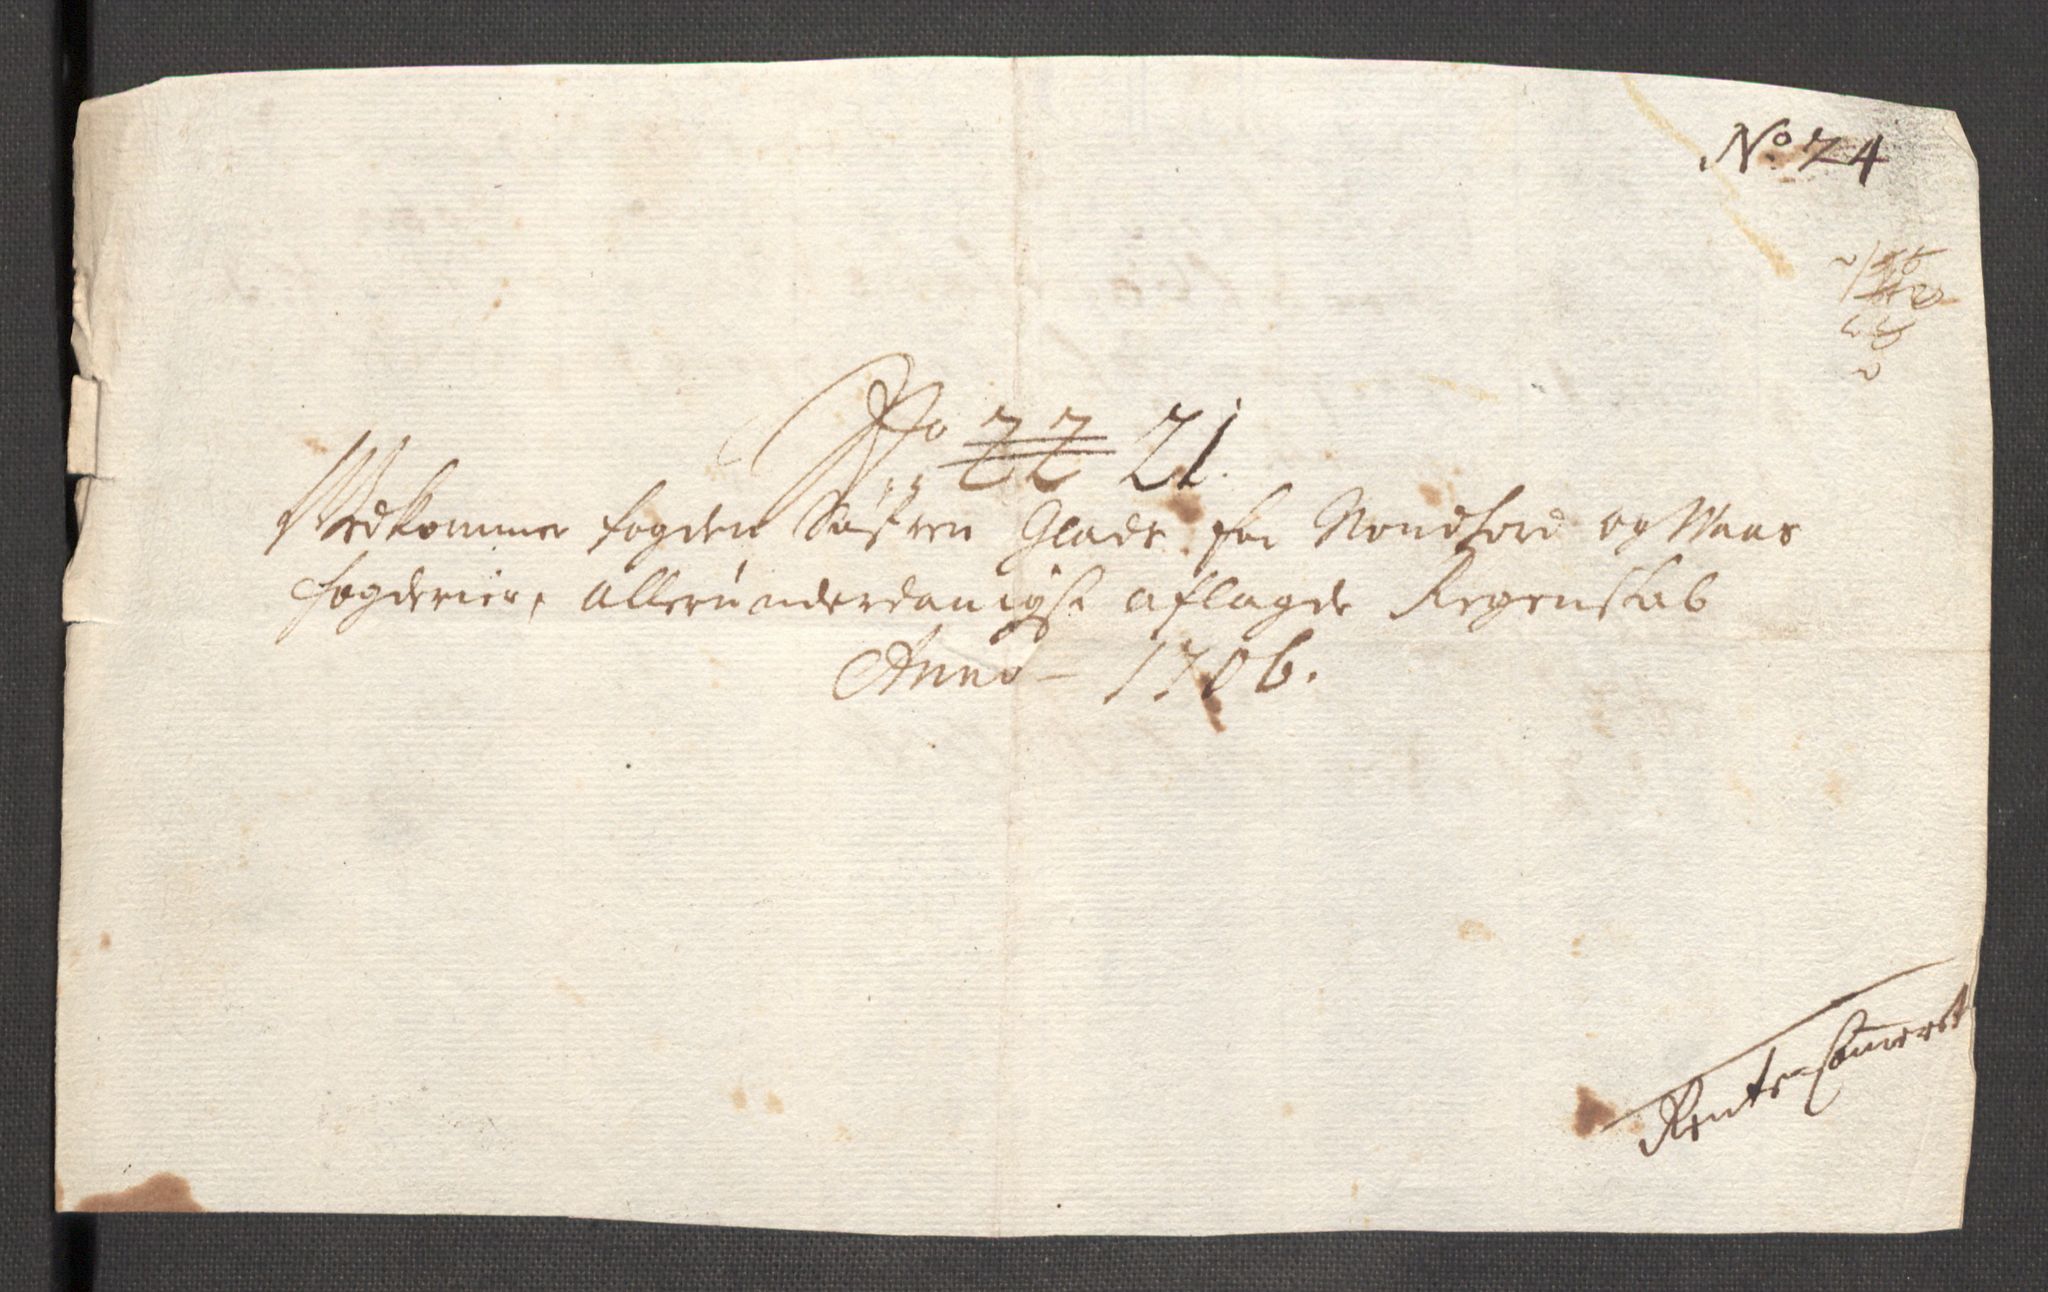 No 74
No 22 21.
Vedkommer fogden Søfren Glade for Nordhord og Waas
fogderier, allerunderdanigst aflagde Regenskab
Anno 1706.
Rente Cammeret